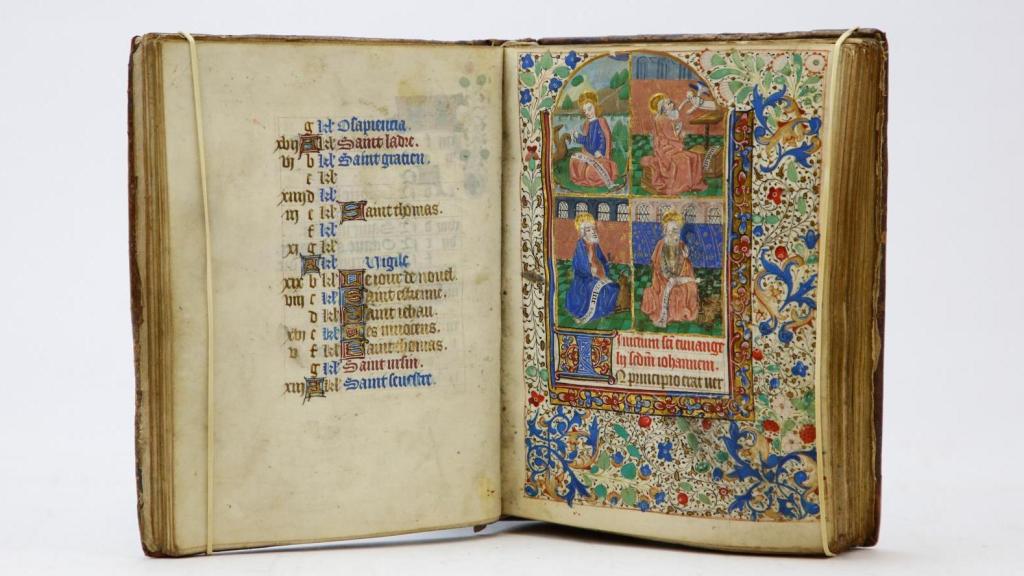 g kl Osapiencia.
xvij A kl Saint ladre.
vj b kl Saint gracien.
c kl
xiiij d kl
iij e kl Saint thomas.
f kl
xj g kl
A kl Vigile
xix b kl Le iour de nouel.
viij c kl Saint estienne.
d kl Saint iehan.
xvj e kl Les innocens.
v f kl Saint thomas.
g kl Saint ursin.
xiij A kl Saint seuestre.
Inicium sci euuange
lij scdm iohannem.
In principio erat uer